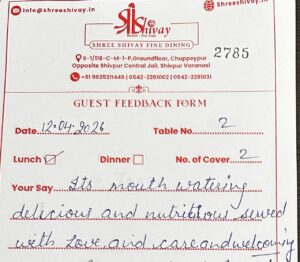 info@shreeshivay.in
Shreeshivay.in
Shivay
SHREE SHIVAY FINE DINING
2785
S-1/118-C-M-1-P,Groundfloor, Chuppeypur
Opposite Shivpur Central Jail, Shivpur Varanasi
+91 9635311449 | 0542-2281002 | 0542-2281031
GUEST FEEDBACK FORM
Date 12.04.2026 Table No. 2
Lunch Dinner No. of Cover 2
Your Say Its mouth watering
delicious and nutritious served
with love and care and welcoming